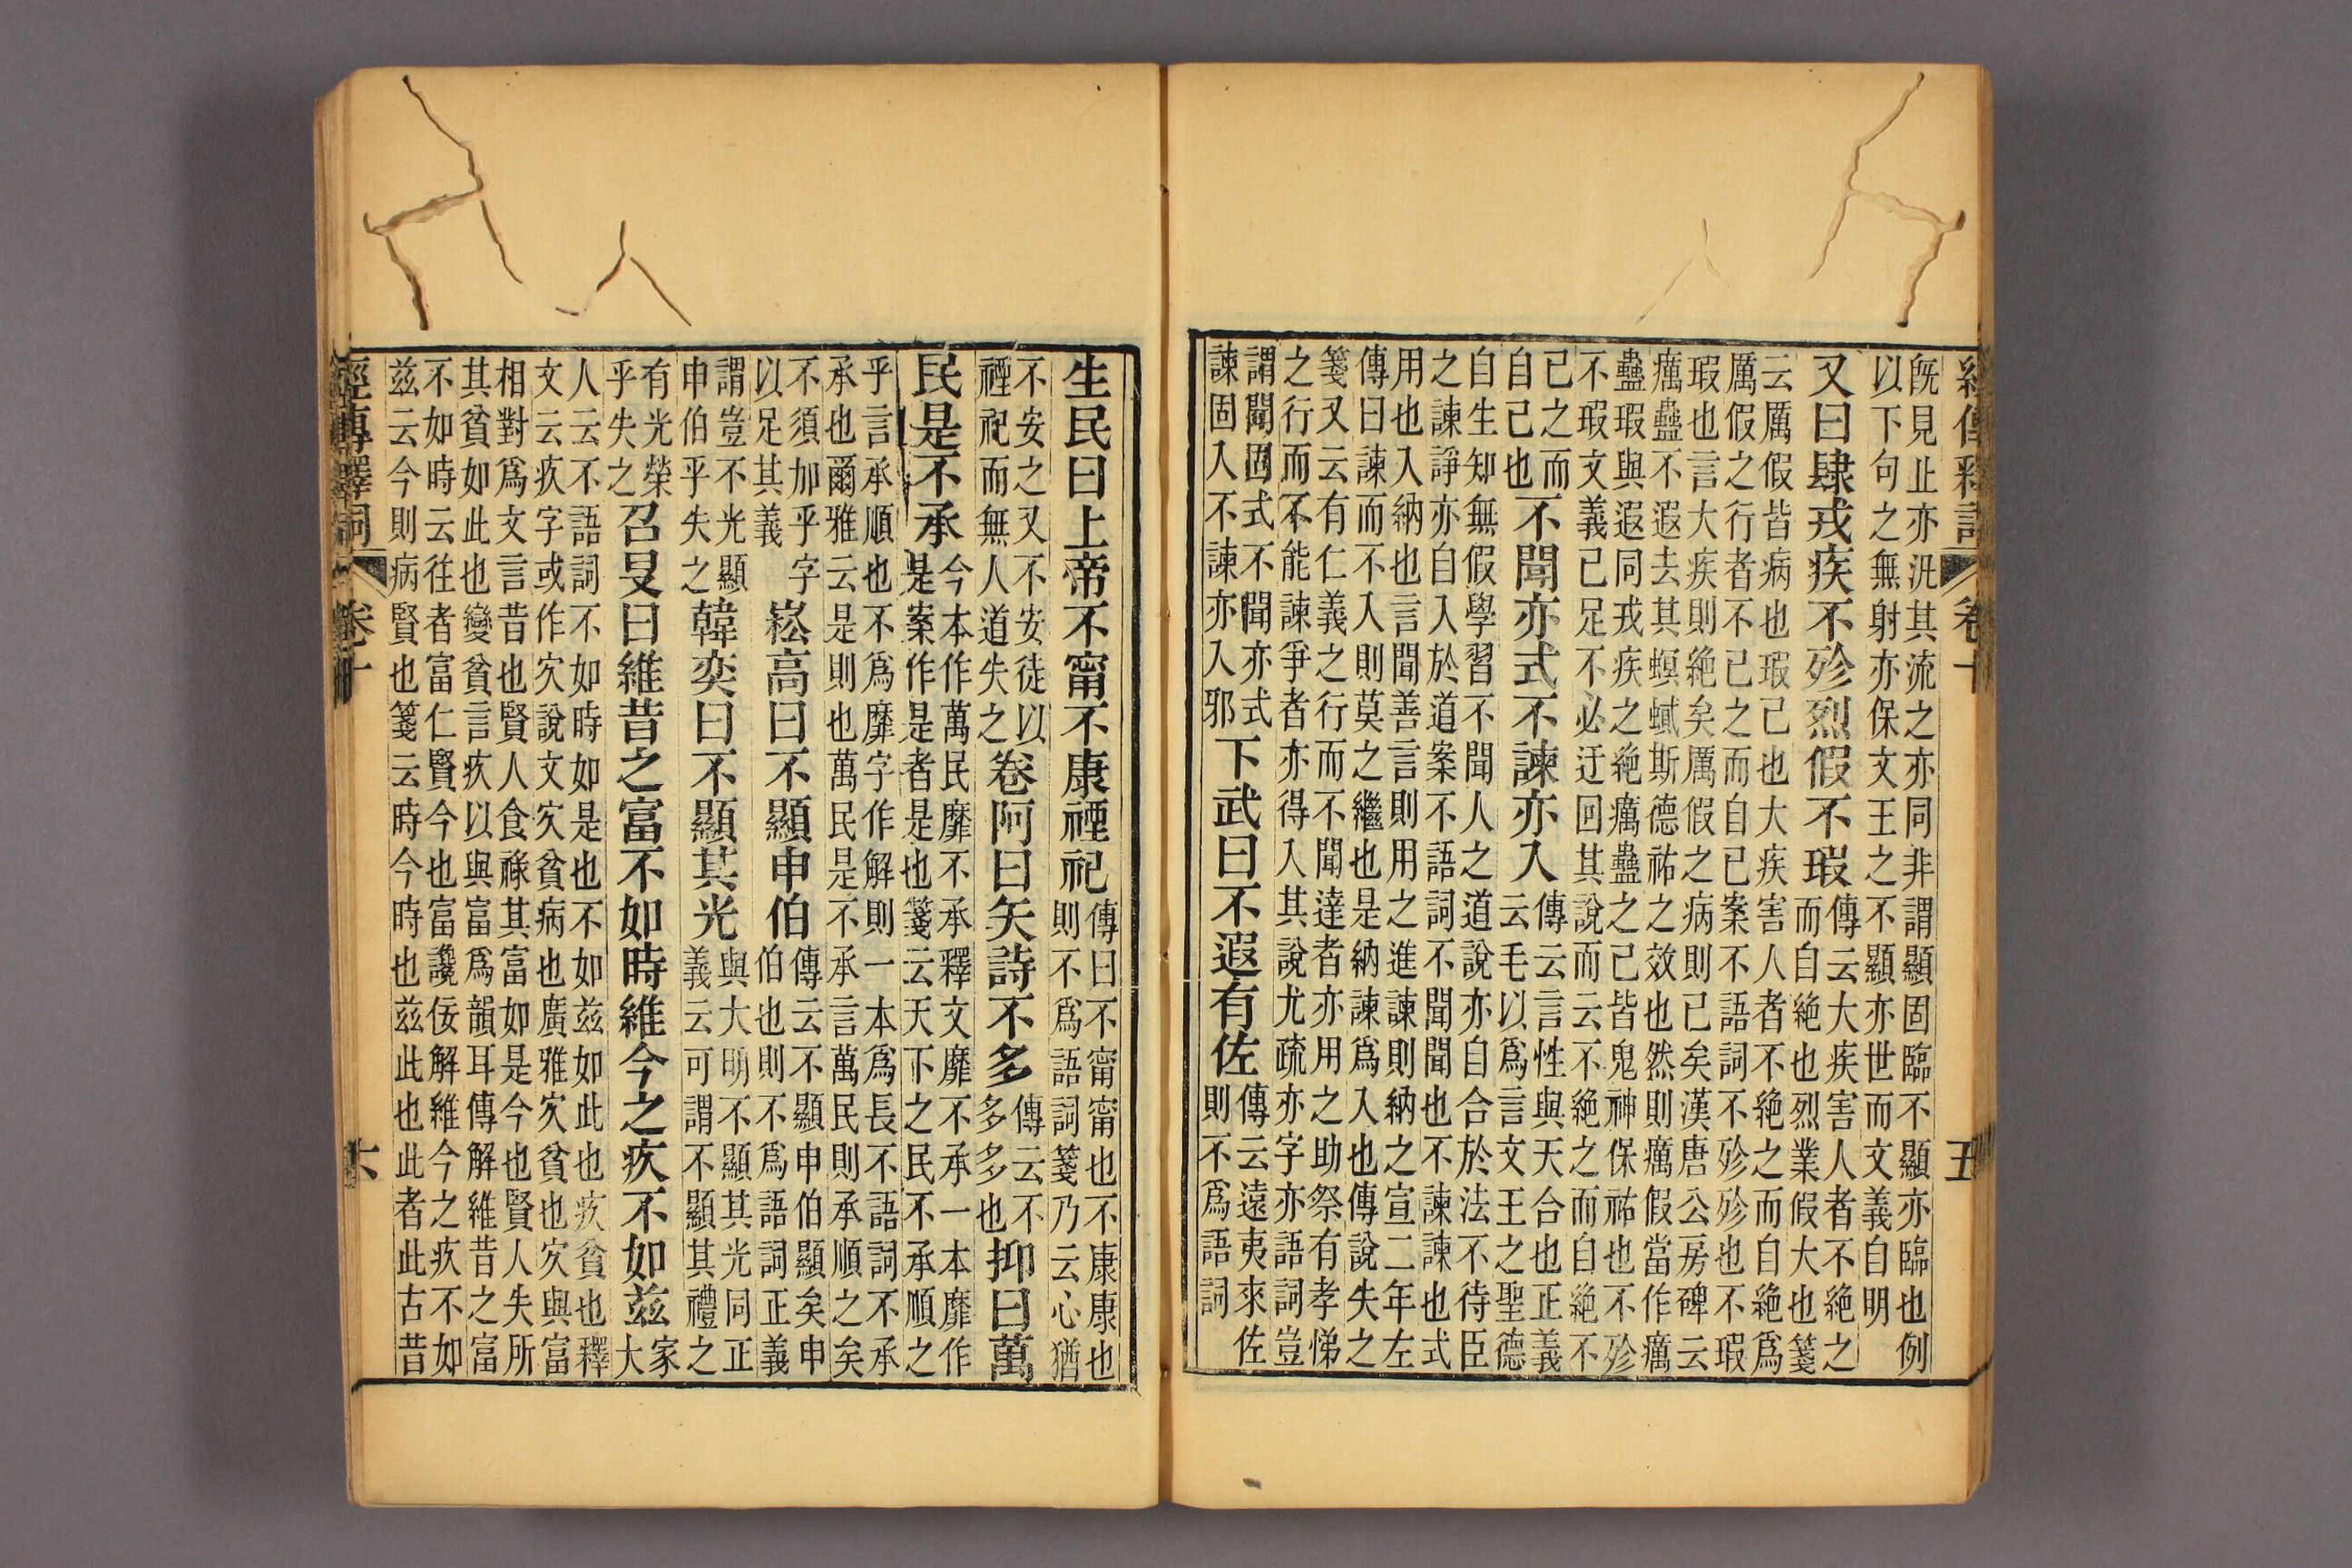 經傳釋詞 卷十 五
旣見止亦汎其流之亦同非謂顯固臨不顯亦臨也例
以下句之無射亦保文王之不顯亦世而文義自明
又曰肆戎疾不殄烈假不瑕
傳云大疾害人者不絕之
而自絕也烈業假大也箋
云厲假皆病也瑕已也大疾害人者不絕之而自絕爲
厲假之行者不已之而自已案不語詞不殄殄也不瑕
瑕也言大疾則絕矣厲假之病則已矣漢唐公房碑云
癘蠱不遐去其螟蟘斯德祐之效也然則癘假當作癘
蠱瑕與遐同戎疾之絕癘蠱之已皆鬼神保祐也不殄
不瑕文義已足不必迂回其說而云不絕之而自絕不
已之而
自已也
不聞亦式不諫亦入
傳云言性與天合也正義
云毛以爲言文王之聖德
自生知無假學習不聞人之道說亦自合於法不待臣
之諫諍亦自入於道案不語詞不聞聞也不諫諫也式
用也入納也言聞善言則用之進諫則納之宣二年左
傳曰諫而不入則莫之繼也是納諫爲入也傳說失之
箋又云有仁義之行而不聞達者亦用之助祭有孝悌
之行而不能諫爭者亦得入其說尤疏亦字亦語詞豈
謂聞固式不聞亦式
諫固入不諫亦入邪
下武曰不遐有佐
傳云遠夷來佐
則不爲語詞
生民曰上帝不甯不康禋祀
傳曰不甯甯也不康康也
則不爲語詞箋乃云心猶
不安之又不安徒以
禋祀而無人道失之
卷阿曰矢詩不多
傳云不
多多也
抑曰萬
民是不承
今本作萬民靡不承釋文靡不承一本靡作
是案作是者是也箋云天下之民不承順之
乎言承順也不爲靡字作解則一本爲長不語詞不承
承也爾雅云是則也萬民是不承言萬民則承順之矣
不須加乎字
以足其義
崧高曰不顯申伯
傳云不顯申伯顯矣申
伯也則不爲語詞正義
謂豈不光顯
申伯乎失之
韓奕曰不顯其光
與大明不顯其光同正
義云可謂不顯其禮之
有光榮
乎失之
召旻曰維昔之富不如時維今之疚不如茲
家
大
人云不語詞不如時如是也不如茲如此也疚貧也釋
文云疚字或作㝌說文㝌貧病也廣雅㝌貧也㝌與富
相對爲文言昔也賢人食祿其富如是今也賢人失所
其貧如此也變貧言疚以與富爲韻耳傳解維昔之富
不如時云往者富仁賢今也富讒佞解維今之疚不如
茲云今則病賢也箋云時今時也茲此也此者此古昔
經傳釋詞 卷十 六